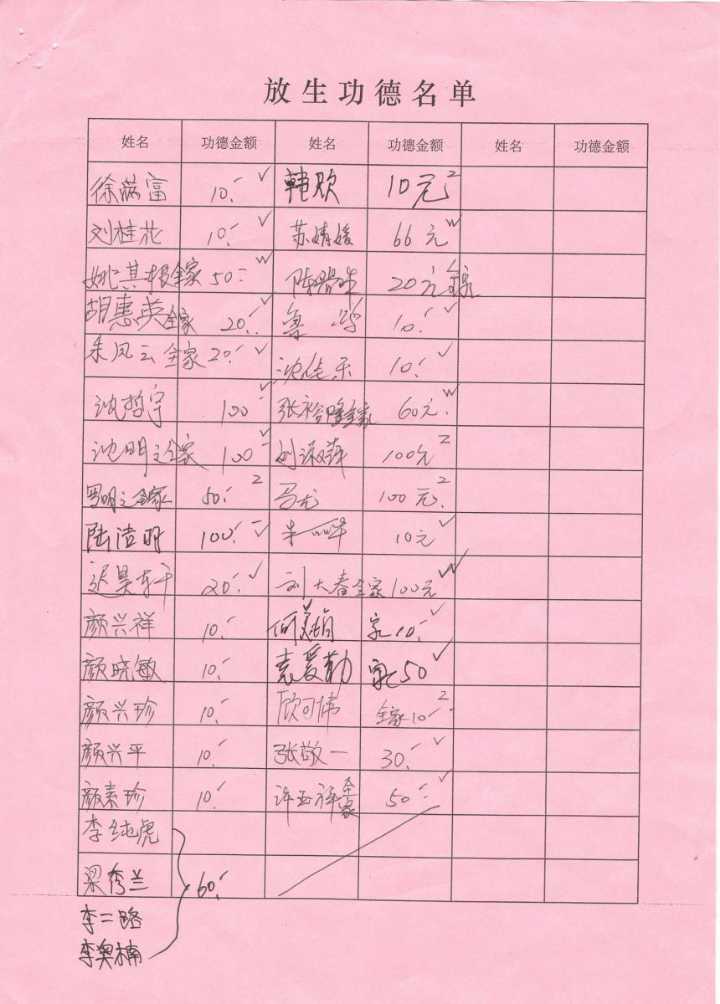 放生功德名单
姓名 功德金额 姓名 功德金额 姓名 功德金额
徐满富 10.- 韩欣 10元
刘桂花 10.- 苏婧媛 66元
姚其根全家 50.- 20元全家
胡惠英全家 20.- 10.-
朱凤云全家 20.- 沈佳乐 10.-
沈哲宇 100 张裕隆全家 60元.
沈明之全家 100 刘淑萍 100元
50.- 马龙 100元.
陆洁明 100.- 10元
20.- 刘大春全家 100元
颜兴祥 10.- 家10.-
颜晓敏 10.- 袁爱勤 家50
颜兴珍 10.- 全家10.-
颜兴平 10.- 张敬一 30.-
颜素珍 10.- 许玉祥全家 50.-
李纯虎
梁秀兰 60.-
李二路
李奥楠